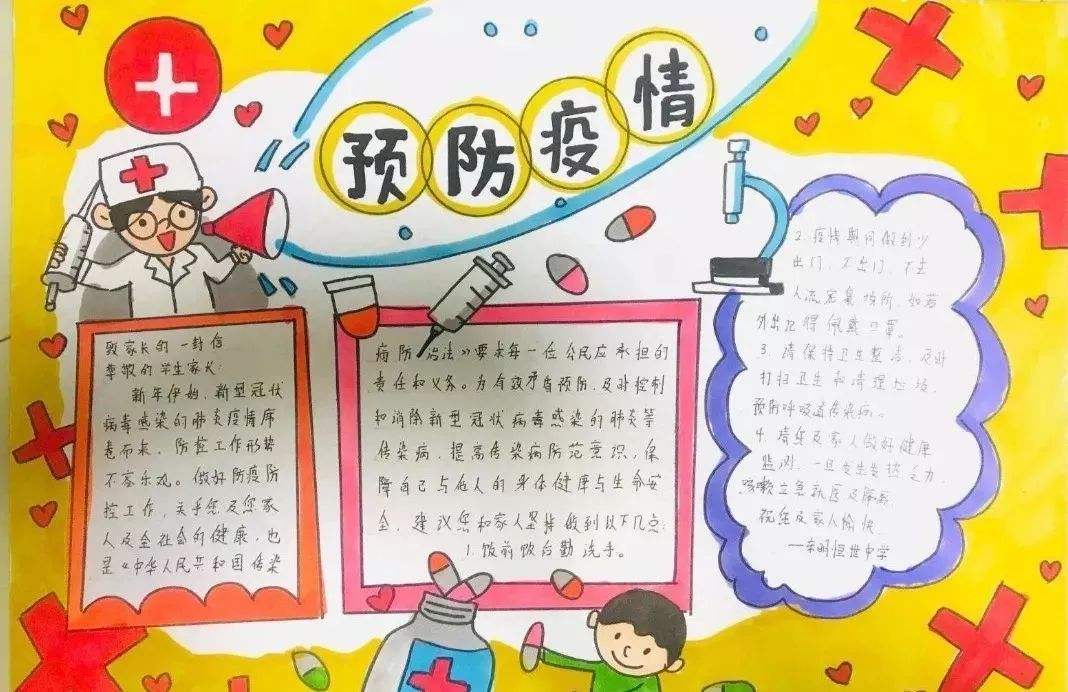 预防疫情
致家长的一封信
尊敬的学生家长:
新年伊始,新型冠状
病毒感染的肺炎疫情席
卷而来,防控工作形势
不容乐观。做好防疫防
控工作,关乎您及您家
人及全社会的健康,也
是《中华人民共和国传染
病防治法》要求每一位公民应承担的
责任和义务。为有效矛盾预防,及时控制
和消除新型冠状病毒感染的肺炎等
传染病,提高传染病防范意识,保
障自己与他人的身体健康与生命安
全,建议您和家人坚持做到以下几点:
1.饭前饭后勤洗手。
2.疫情期间做到少
出门,不出门,不去
人流密集场所,如若
外出记得佩戴口罩。
3.请保持卫生整洁,及时
打扫卫生和清理垃圾,
预防呼吸道传染病。
4.请您及家人做好健康
监测,一旦发生发热乏力,
咳嗽立急就医及隔离
祝您及家人愉快
恒世中学